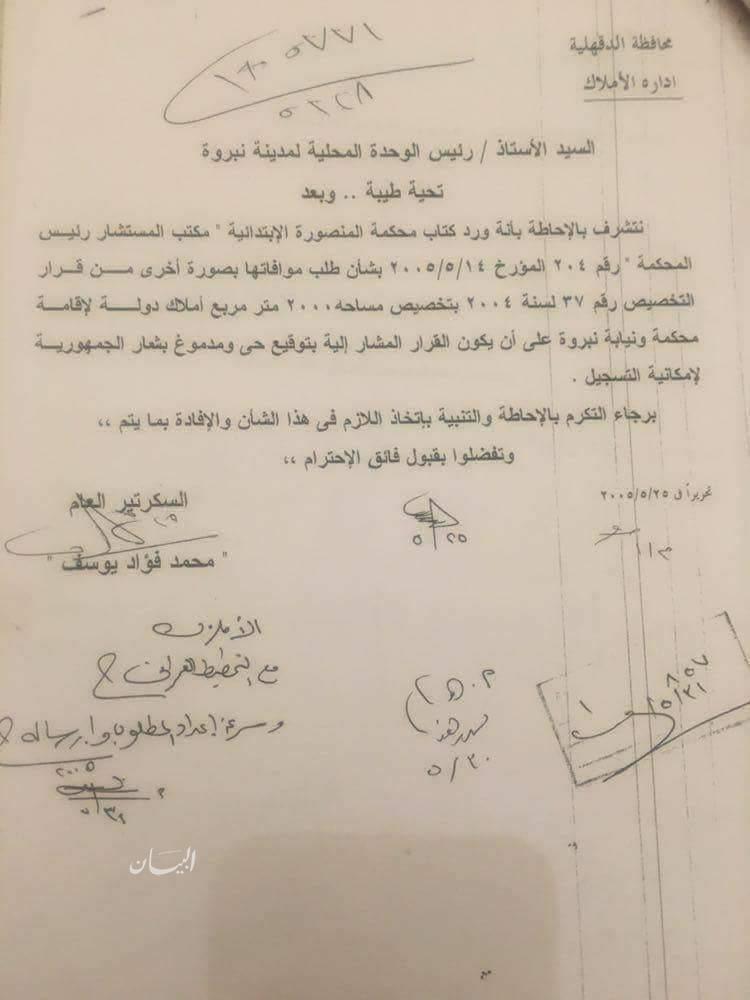 محافظة الدقهلية
اداره الأملاك
٥٧٧١
٥٢٢٨
السيد الأستاذ / رئيس الوحدة المحلية لمدينة نبروة
تحية طيبة .. وبعد
نتشرف بالإحاطة بأنة ورد كتاب محكمة المنصورة الإبتدائية " مكتب المستشار رئيس
المحكمة " رقم ٢٠٤ المؤرخ ٢٠٠٥/٥/١٤ بشأن طلب موافاتها بصورة أخرى من قرار
التخصيص رقم ٣٧ لسنة ٢٠٠٤ بتخصيص مساحه ٢٠٠٠ متر مربع أملاك دولة لإقامة
محكمة ونيابة نبروة على أن يكون القرار المشار إلية بتوقيع حى ومدموغ بشعار الجمهورية
لإمكانية التسجيل .
برجاء التكرم بالإحاطة والتنبية بإتخاذ اللازم فى هذا الشأن والإفادة بما يتم ،،
وتفضلوا بقبول فائق الإحترام ،،
تحريراً فى ٢٠٠٥/٥/٢٥
السكرتير العام
٥/٢٥
" محمد فؤاد يوسف "
الأملاك
مع التخطيط العمرانى
وسرعة إعداد المطلوب وإرساله
٥/٣٠
٢٠٠٥
البيان